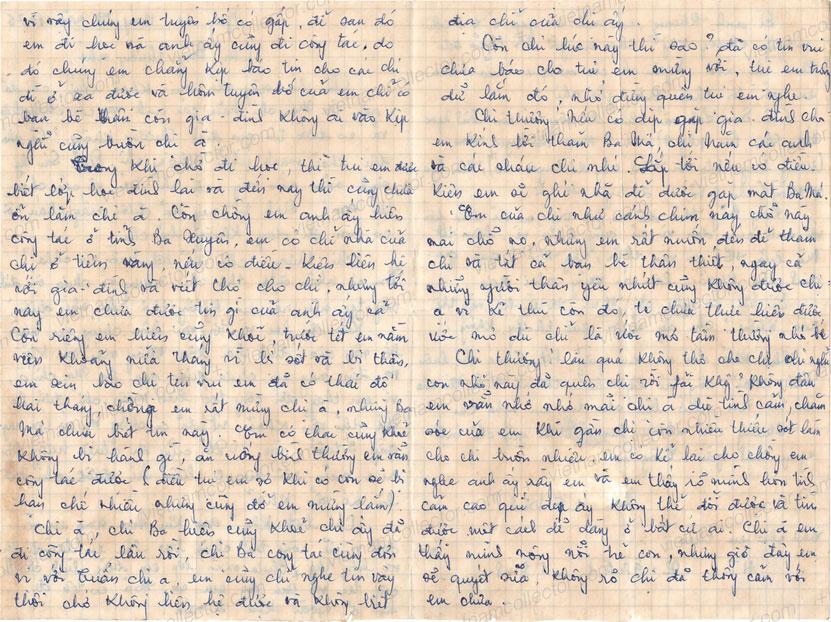 vì vậy chúng em tuyên bố có gấp, để sau đó
em đi học và anh ấy cũng đi công tác, do
đó chúng em chẳng kịp báo tin cho các chị
để ở xa được và hôm tuyên bố của em chỉ có
bạn bè thân còn gia - đình không ai vào kịp
nghĩ cũng buồn chị à.
Trong khi chờ đi học, thì tụi em được
biết lớp học đình lại và đến nay thì cũng chưa
ổn lắm chị à. Còn chồng em anh ấy hiện
công tác ở tỉnh Ba Xuyên, em có chỉ nhà của
chị ở tiềm vang, nếu có điều - kiện liên hệ
với gia - đình và viết thơ cho chị, nhưng tới
nay em chưa được tin gì của anh ấy cả.
Còn riêng em hiện cũng khoẻ, trước tết em nằm
viện khoảng nửa tháng vì bị sốt và bị thận,
em xin báo chị tin vui em đã có thai độ
hai tháng, chồng em rất mừng chị à, nhưng Ba
Má chưa biết tin này. Em có thai cũng khoẻ
không bị hành gì, ăn uống bình thường em vẫn
công tác được (điều tụi em sợ khi có con sẽ bị
hạn chế nhiều nhưng cũng đỡ em mừng lắm).
Chị à, chị Ba hiện cũng khoẻ chị ấy đã
đi công tác lâu rồi, chị Ba công tác cùng đơn
vị với Tuấn chị à, em cũng chỉ nghe tin vậy
thôi chớ không liên hệ được và không biết
địa chỉ của chị ấy.
Còn chị lúc này thì sao? đã có tin vui
chưa báo cho tụi em mừng với, tụi em trông
dữ lắm đó, nhớ đừng quên tụi em nghe.
Chị thương, nếu có dịp gặp gia đình cho
em kính lời thăm Ba Má, chị Năm các anh
và các cháu chị nhé. Sắp tới nếu có điều
kiện em sẽ ghé nhà để được gặp mặt Ba Má.
Em của chị như cánh chim nay chỗ này
mai chỗ nọ, nhưng em rất muốn đến để thăm
chị và tất cả bạn bè thân thiết, ngay cả
những người thân yêu nhứt cũng không được chị
à vì kẻ thù còn đó, ta chưa thực hiện được
ước mơ dù chỉ là ước mơ tầm thường nhỏ bé
Chị thương! lâu quá không thơ cho chị, chị nghĩ
con nhỏ này đã quên chị rồi fải không? không đâu
em vẫn nhớ nhớ mãi chị à dù tình cảm, chăm
sóc của em khi gần chị còn nhiều thiếu sót làm
cho chị buồn nhiều. em có kể lại cho chồng em
nghe anh ấy rầy em và em thấy rõ mình hơn tình
cảm cao quí đẹp ấy không thể đổi được và tìm
được một cách dễ dàng ở bất cứ ai. Chị à em
thấy mình nông nổi trẻ con, nhưng giờ đây em
sẽ quyết sửa, không rõ chị đã thông cảm với
em chưa.